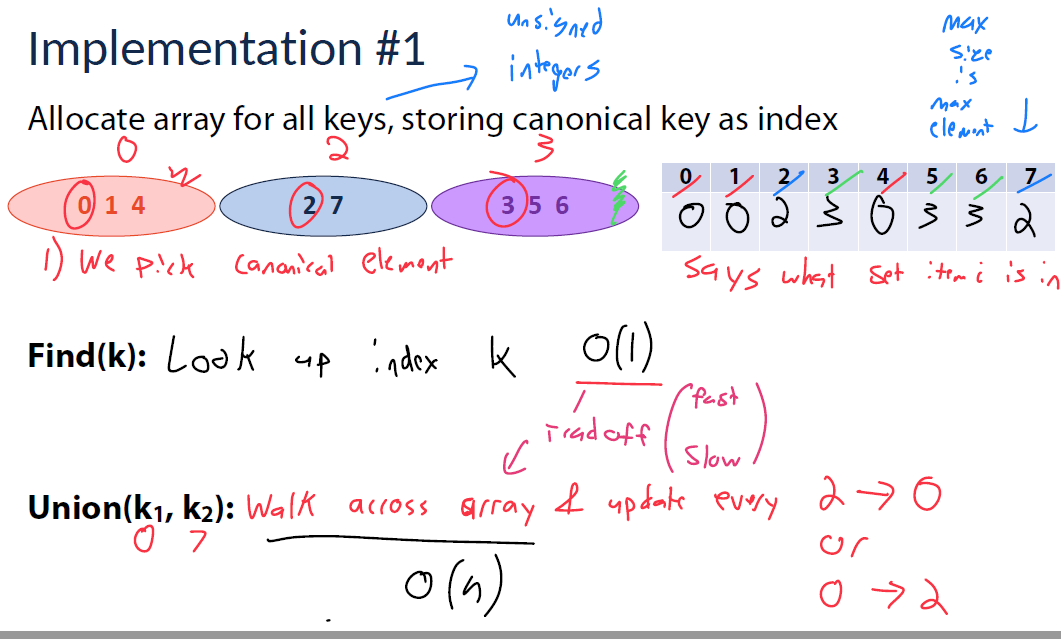 Implementation #1
unsigned
integers
max
size
is
max
element
Allocate array for all keys, storing canonical key as index
0 2 3
0 1 4
2 7
3 5 6
0 1 2 3 4 5 6 7
0 0 2 3 0 3 3 2
1) We pick canonical element
says what set item i is in
Find(k): Look up index k O(1)
Tradoff (fast
slow)
Union(k₁, k₂): Walk across array & update every 2 → 0
0 7
or
0 → 2
O(n)